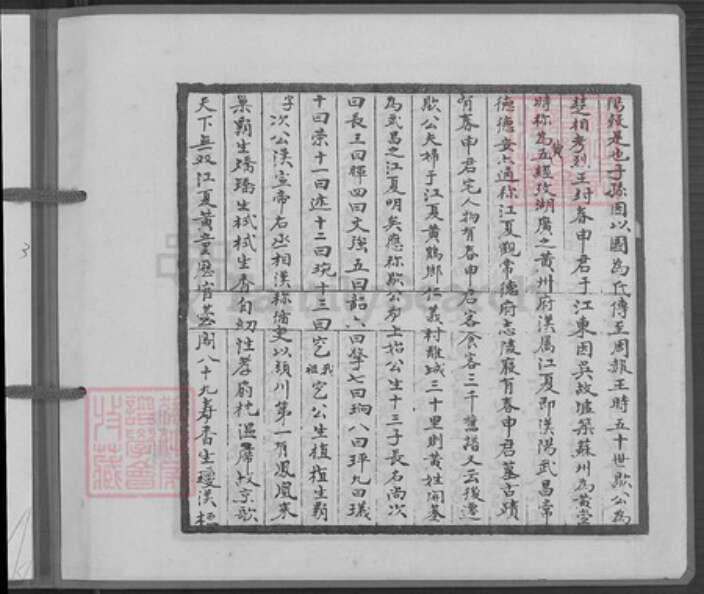 陽鎮是也子孫因以國為氏傳至周赧王時五十世歇公為
楚相考烈王封春申君于江東因吳故墟築蘇州為黃堂
時称為五經攷湖廣之黃州府漢屬江夏即漢陽武昌常
德德安上通称江夏觀常德府志陵寢有春申君墓古蹟
有春申君宅人物有春申君客食客三千舊譜又云後遷
歇公夫婦于江夏黃鶴鄉仁義村離城三十里則黃姓開基
為武昌之江夏明矣應称歇公為上始公生十三子長名尚次
曰長三曰輝四曰文強五曰韶六曰擎七曰珣八曰玶九曰璣
十曰榮十一曰迹十二曰琬十三曰宅我祖宅公生植植生霸
字次公漢宣帝右丞相漢称循吏以潁川第一有鳳凰來
巢霸生璚璚生栻栻生香自幼性孝扇枕温席故京歌
天下無双江夏黃童歷官臺閣八十九壽香生瓊漢